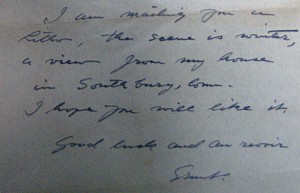 I am mailing you a
litho, the scene is winter,
a view from my house
in Southbury, Conn.
I hope you will like it.
Good luck and au revoir